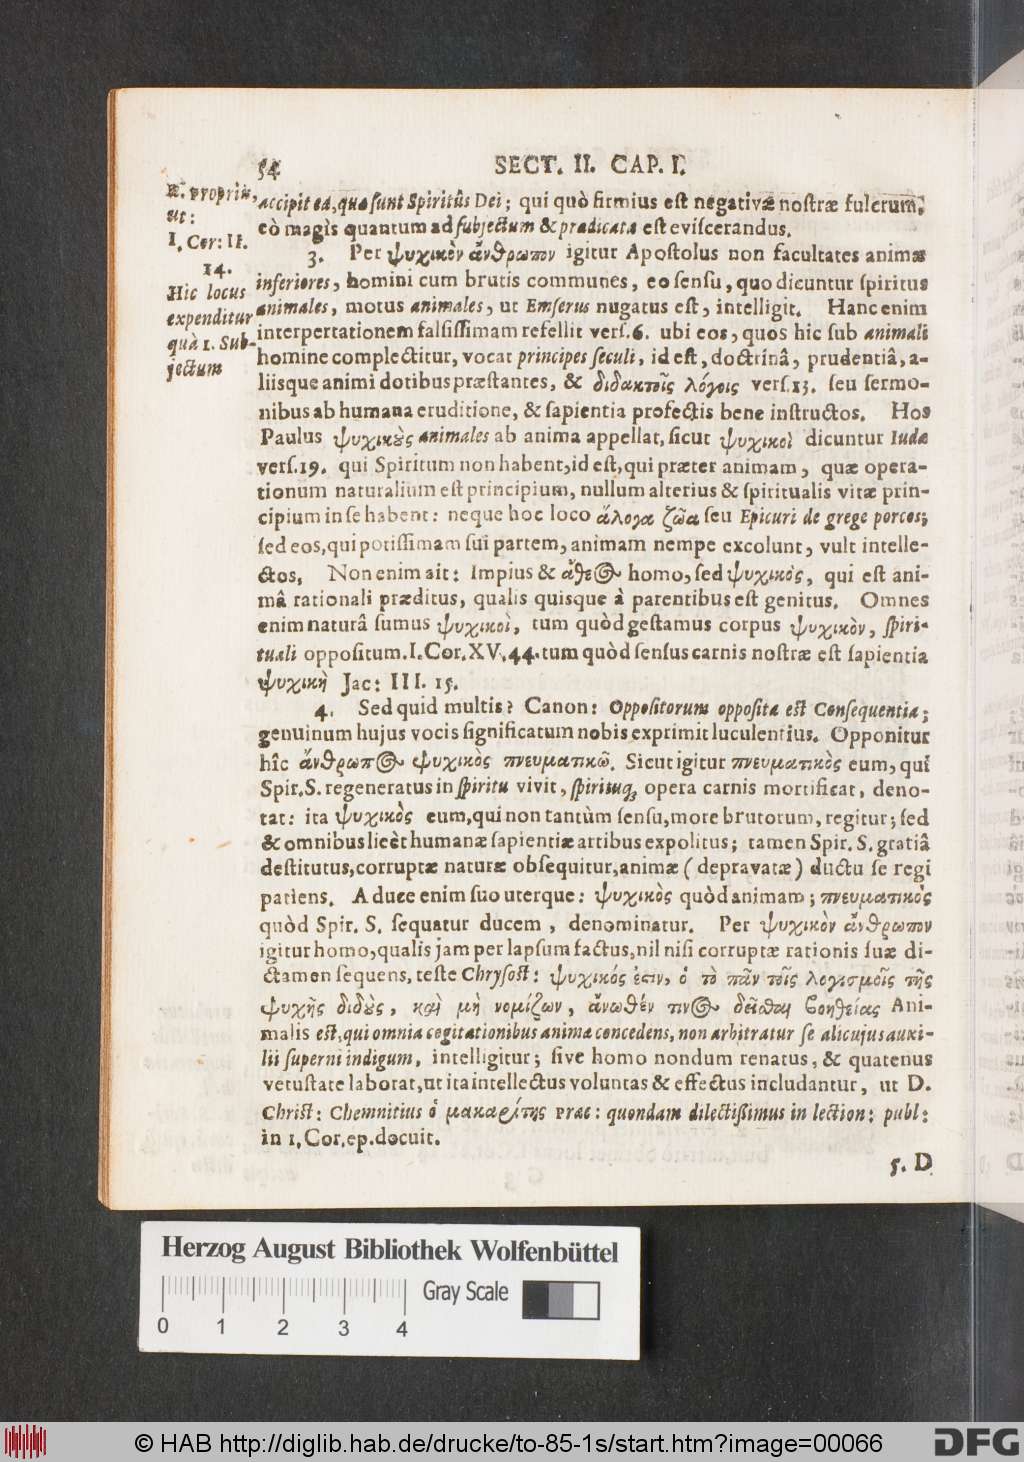 54 SECT. II. CAP. I.
æ. propriæ,
ut:
I. Cor: II.
14.
Hic locus
expenditur
quà 1. Sub-
jectum
accipit ea, quæ sunt Spiritûs Dei; qui quò firmius est negativæ nostræ fulcrum,
eò magis quantum ad subjectum & prædicata est eviscerandus.
3. Per ψυχικὸν ἄνθρωπον igitur Apostolus non facultates animæ
inferiores, homini cum brutis communes, eo sensu, quo dicuntur spiritus
animales, motus animales, ut Emserus nugatus est, intelligit. Hanc enim
interpertationem falsissimam refellit vers. 6. ubi eos, quos hic sub animali
homine complectitur, vocat principes seculi, id est, doctrinâ, prudentiâ, a-
liisque animi dotibus præstantes, & διδακτοῖς λόγοις vers. 13. seu sermo-
nibus ab humana eruditione, & sapientia profectis bene instructos. Hos
Paulus ψυχικοὺς animales ab anima appellat, sicut ψυχικοὶ dicuntur Iudæ
vers. 19. qui Spiritum non habent, id est, qui præter animam, quæ opera-
tionum naturalium est principium, nullum alterius & spiritualis vitæ prin-
cipium in se habent: neque hoc loco ἄλογα ζῶα seu Epicuri de grege porcos;
sed eos, qui potissimam sui partem, animam nempe excolunt, vult intelle-
ctos. Non enim ait: Impius & ἄθεος homo, sed ψυχικὸς, qui est ani-
mâ rationali præditus, qualis quisque à parentibus est genitus. Omnes
enim naturâ sumus ψυχικοὶ, tum quòd gestamus corpus ψυχικὸν, spiri-
tuali oppositum. I. Cor. XV. 44. tum quòd sensus carnis nostræ est sapientia
ψυχικὴ Jac: III. 15.
4. Sed quid multis? Canon: Oppositorum opposita est Consequentia;
genuinum hujus vocis significatum nobis exprimit luculentius. Opponitur
hîc ἄνθρωπος ψυχικὸς πνευματικῶ. Sicut igitur πνευματικὸς eum, qui
Spir. S. regeneratus in spiritu vivit, spirituq; opera carnis mortificat, deno-
tat: ita ψυχικὸς eum, qui non tantùm sensu, more brutorum, regitur; sed
& omnibus licèt humanæ sapientiæ artibus expolitus; tamen Spir. S. gratiâ
destitutus, corruptæ naturæ obsequitur, animæ (depravatæ) ductu se regi
patiens. A duce enim suo uterque: ψυχικὸς quòd animam; πνευματικὸς
quòd Spir. S. sequatur ducem, denominatur. Per ψυχικὸν ἄνθρωπον
igitur homo, qualis jam per lapsum factus, nil nisi corruptæ rationis suæ di-
ctamen sequens, teste Chrysost: ψυχικός ἐστιν, ὁ τὸ πᾶν τοῖς λογισμοῖς τῆς
ψυχῆς διδοὺς, καὶ μὴ νομίζων, ἄνωθέν τινος δεῖσθαι βοηθείας Ani-
malis est, qui omnia cogitationibus animæ concedens, non arbitratur se alicujus auxi-
lii superni indigum, intelligitur; sive homo nondum renatus, & quatenus
vetustate laborat, ut ita intellectus voluntas & effectus includantur, ut D.
Christ: Chemnitius ὁ μακαρίτης præc: quondam dilectissimus in lection: publ:
in 1. Cor. ep. docuit.
5. D
Herzog August Bibliothek Wolfenbüttel
0 1 2 3 4 Gray Scale
© HAB http://diglib.hab.de/drucke/to-85-1s/start.htm?image=00066
DFG